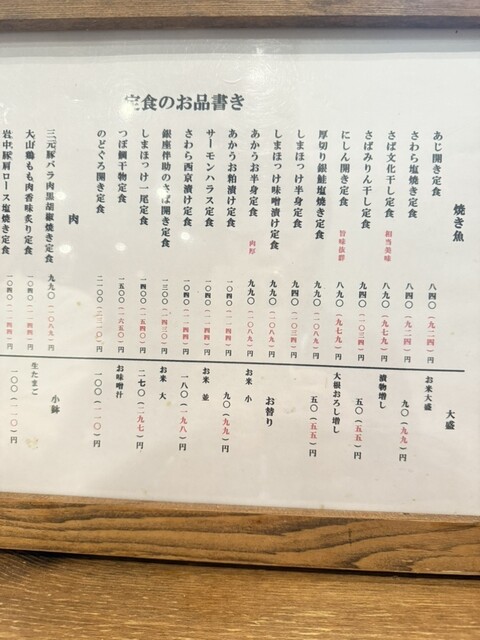 定食のお品書き
焼き魚
あじ開き定食 八四〇(九二四)円
さわら塩焼き定食 八四〇(九二四)円
さば文化干し定食 相当美味 八九〇(九七九)円
さばみりん干し定食 九四〇(一〇三四)円
にしん開き定食 旨味抜群 八九〇(九七九)円
厚切り銀鮭塩焼き定食 九九〇(一〇八九)円
しまほっけ半身定食 九四〇(一〇三四)円
しまほっけ味噌漬け定食 九九〇(一〇八九)円
あかうお半身定食 肉厚 九九〇(一〇八九)円
あかうお粕漬け定食 一〇四〇(一一四四)円
サーモンハラス定食 一〇四〇(一一四四)円
さわら西京漬け定食 一〇四〇(一一四四)円
銀座伴助のさば開き定食 一三〇〇(一四三〇)円
しまほっけ一尾定食 一四〇〇(一五四〇)円
つぼ鯛干物定食 一五〇〇(一六五〇)円
のどぐろ開き定食 二一〇〇(二三一〇)円
肉
三元豚バラ肉黒胡椒焼き定食 九九〇(一〇八九)円
大山鶏もも肉香味炙り定食 一〇四〇(一一四四)円
岩中豚肩ロース塩焼き定食 一〇四〇(一一四四)円
大盛
お米大盛 九〇(九九)円
漬物増し 五〇(五五)円
大根おろし増し 五〇(五五)円
お替り
お米 小 九〇(九九)円
お米 並 一八〇(一九八)円
お米 大 二七〇(二九七)円
お味噌汁 一〇〇(一一〇)円
小鉢
生たまご 一〇〇(一一〇)円